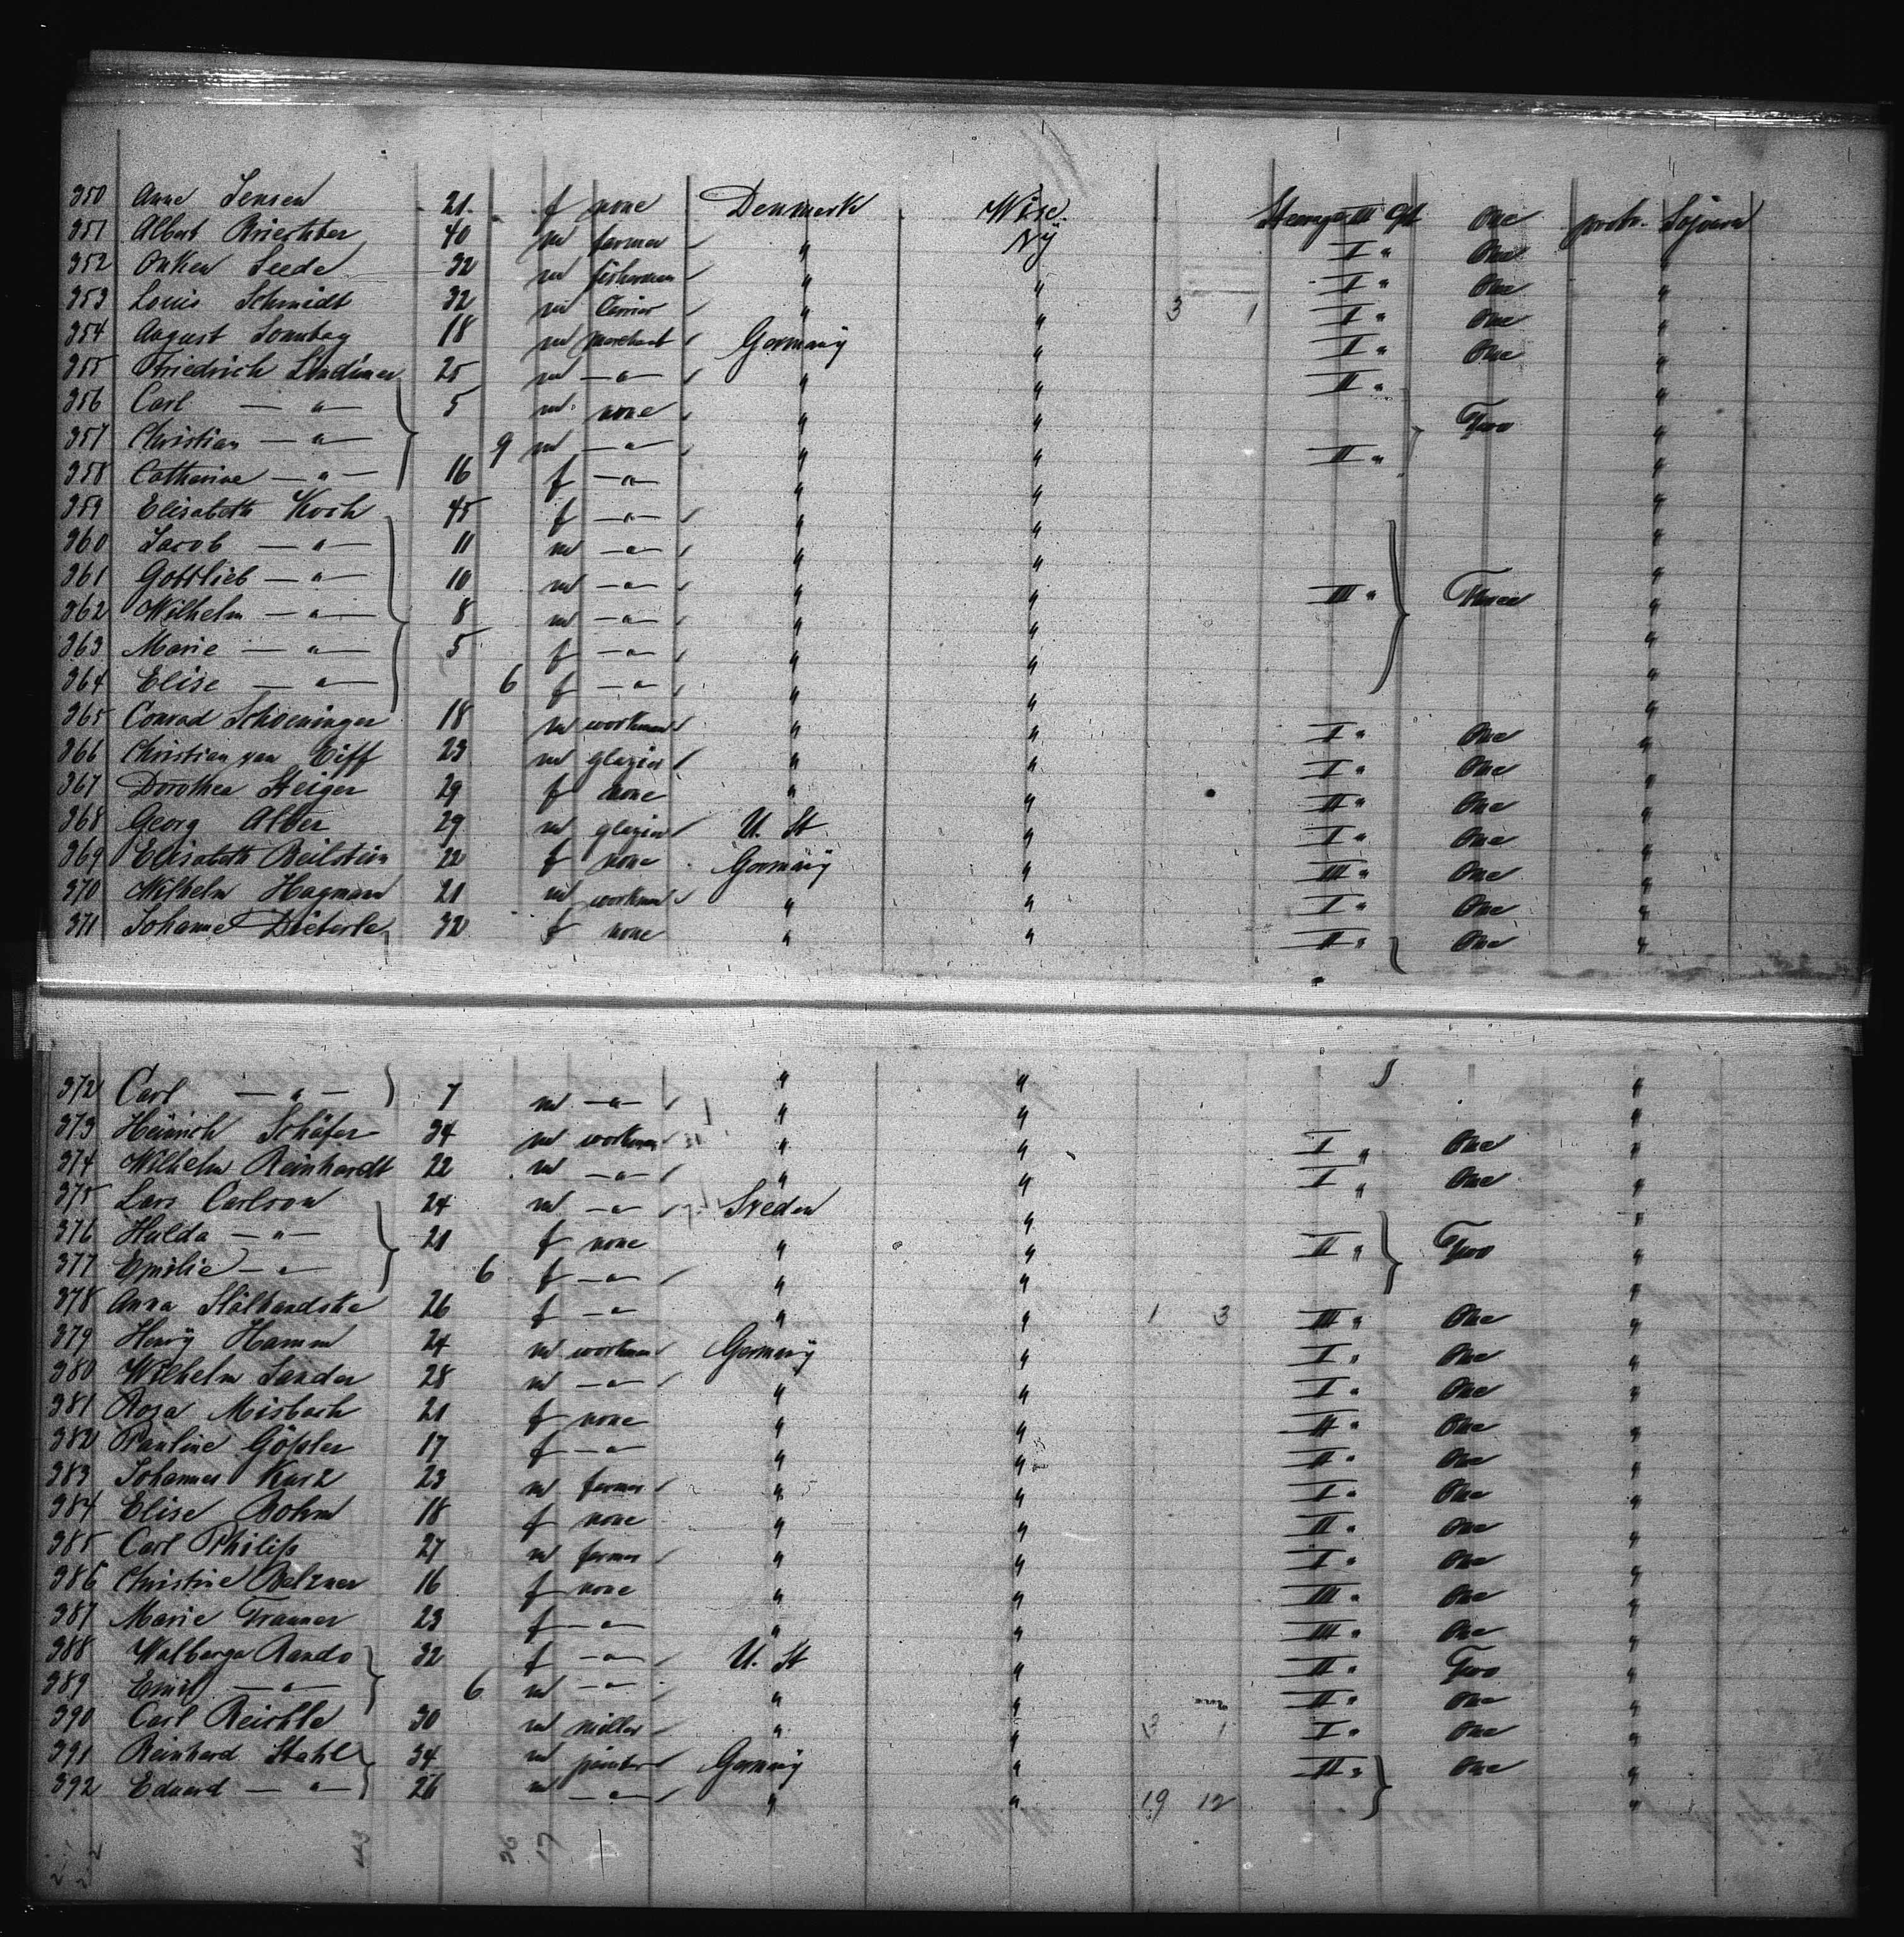 350 Anne Jensen 21. f none Denmark Wisc. Steerage III Cpt One protr. Sojourn
351 Albert 40 m farmer " Ny I " One "
352 Onken Seede 32 m fisherman " " I " One "
353 Louis Schmidt 32 m " " 3 1 I " One "
354 August Sonntag 18 m merchant Germany " I " One "
355 Friedrich Lindiner 25 m — " — " " II " "
356 Carl — " — 5 m. none " " Two "
357 Christian — " — 9 m — " — " " II " "
358 Catharine — " — 16 f — " — " " "
359 Elisabeth Koch 45 f — " — " " "
360 Jacob — " — 11 m — " — " " "
361 Gottlieb — " — 10 m — " — " " III " Three "
362 Wilhelm — " — 8 m — " — " " "
363 Marie — " — 5 f — " — " " "
364 Elise — " — 6 f — " — " " "
365 Conrad Schoeninger 18 m workman " " I " One "
366 Christian van Eiff 23 m glazier " " I " One "
367 Dorothea Steiger 29 f none " " II " One "
368 Georg Alber 29 m glazier U. St " I " One "
369 Elisabeth Beilstein 22 f none Germany " III " One "
370 Wilhelm Hagmann 21 m workman " " I " One "
371 Johanne Dieterle 32 f none " " II " One "
372 Carl — " — 7 m — " — " " "
373 Heinrich Schäfer 34 m workman " " I " One "
374 Wilhelm Reinhardt 22 m — " — " " I " One "
375 Lars Carlson 24 m — " — Sveden " "
376 Hulda — " — 21 f none " " II " Two "
377 Emilie — " — 6 f — " — " " "
378 Anna Stålhandske 26 f — " " " 1 3 III " One "
379 Henry Hamm 24 m workman Germany " I " One "
380 Wilhelm Sander 28 m — " — " " I " One "
381 Rosa Misbach 21 f none " " II " One "
382 Pauline Gößler 17 f — " — " " II " One "
383 Johannes Kurz 23 m farmer " " I " One "
384 Elise Bohm 18 f none " " II " One "
385 Carl Philipp 27 m farmer " " I " One "
386 Christine Belzner 16 f none " " III " One "
387 Marie Frauner 23 f — " — " " III " One "
388 Walberga Rando 32 f — " — U. St " II " Two "
389 Emil — " — 6 m — " — " " II " One "
390 Carl Reichle 30 m miller " " 3 1 I " One "
391 Reinhard Stahl 34 m painter Germany " II " One "
392 Eduard — " — 26 m — " — " " 19 12 "